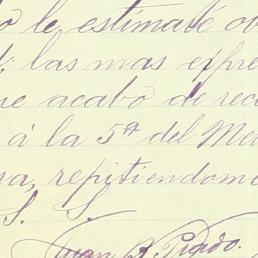 o le estimaré ob
d, las mas expre
ue acabo de rec
á la 5ª del Me
sa, repitiendome
S. S.
Juan B. Prado.